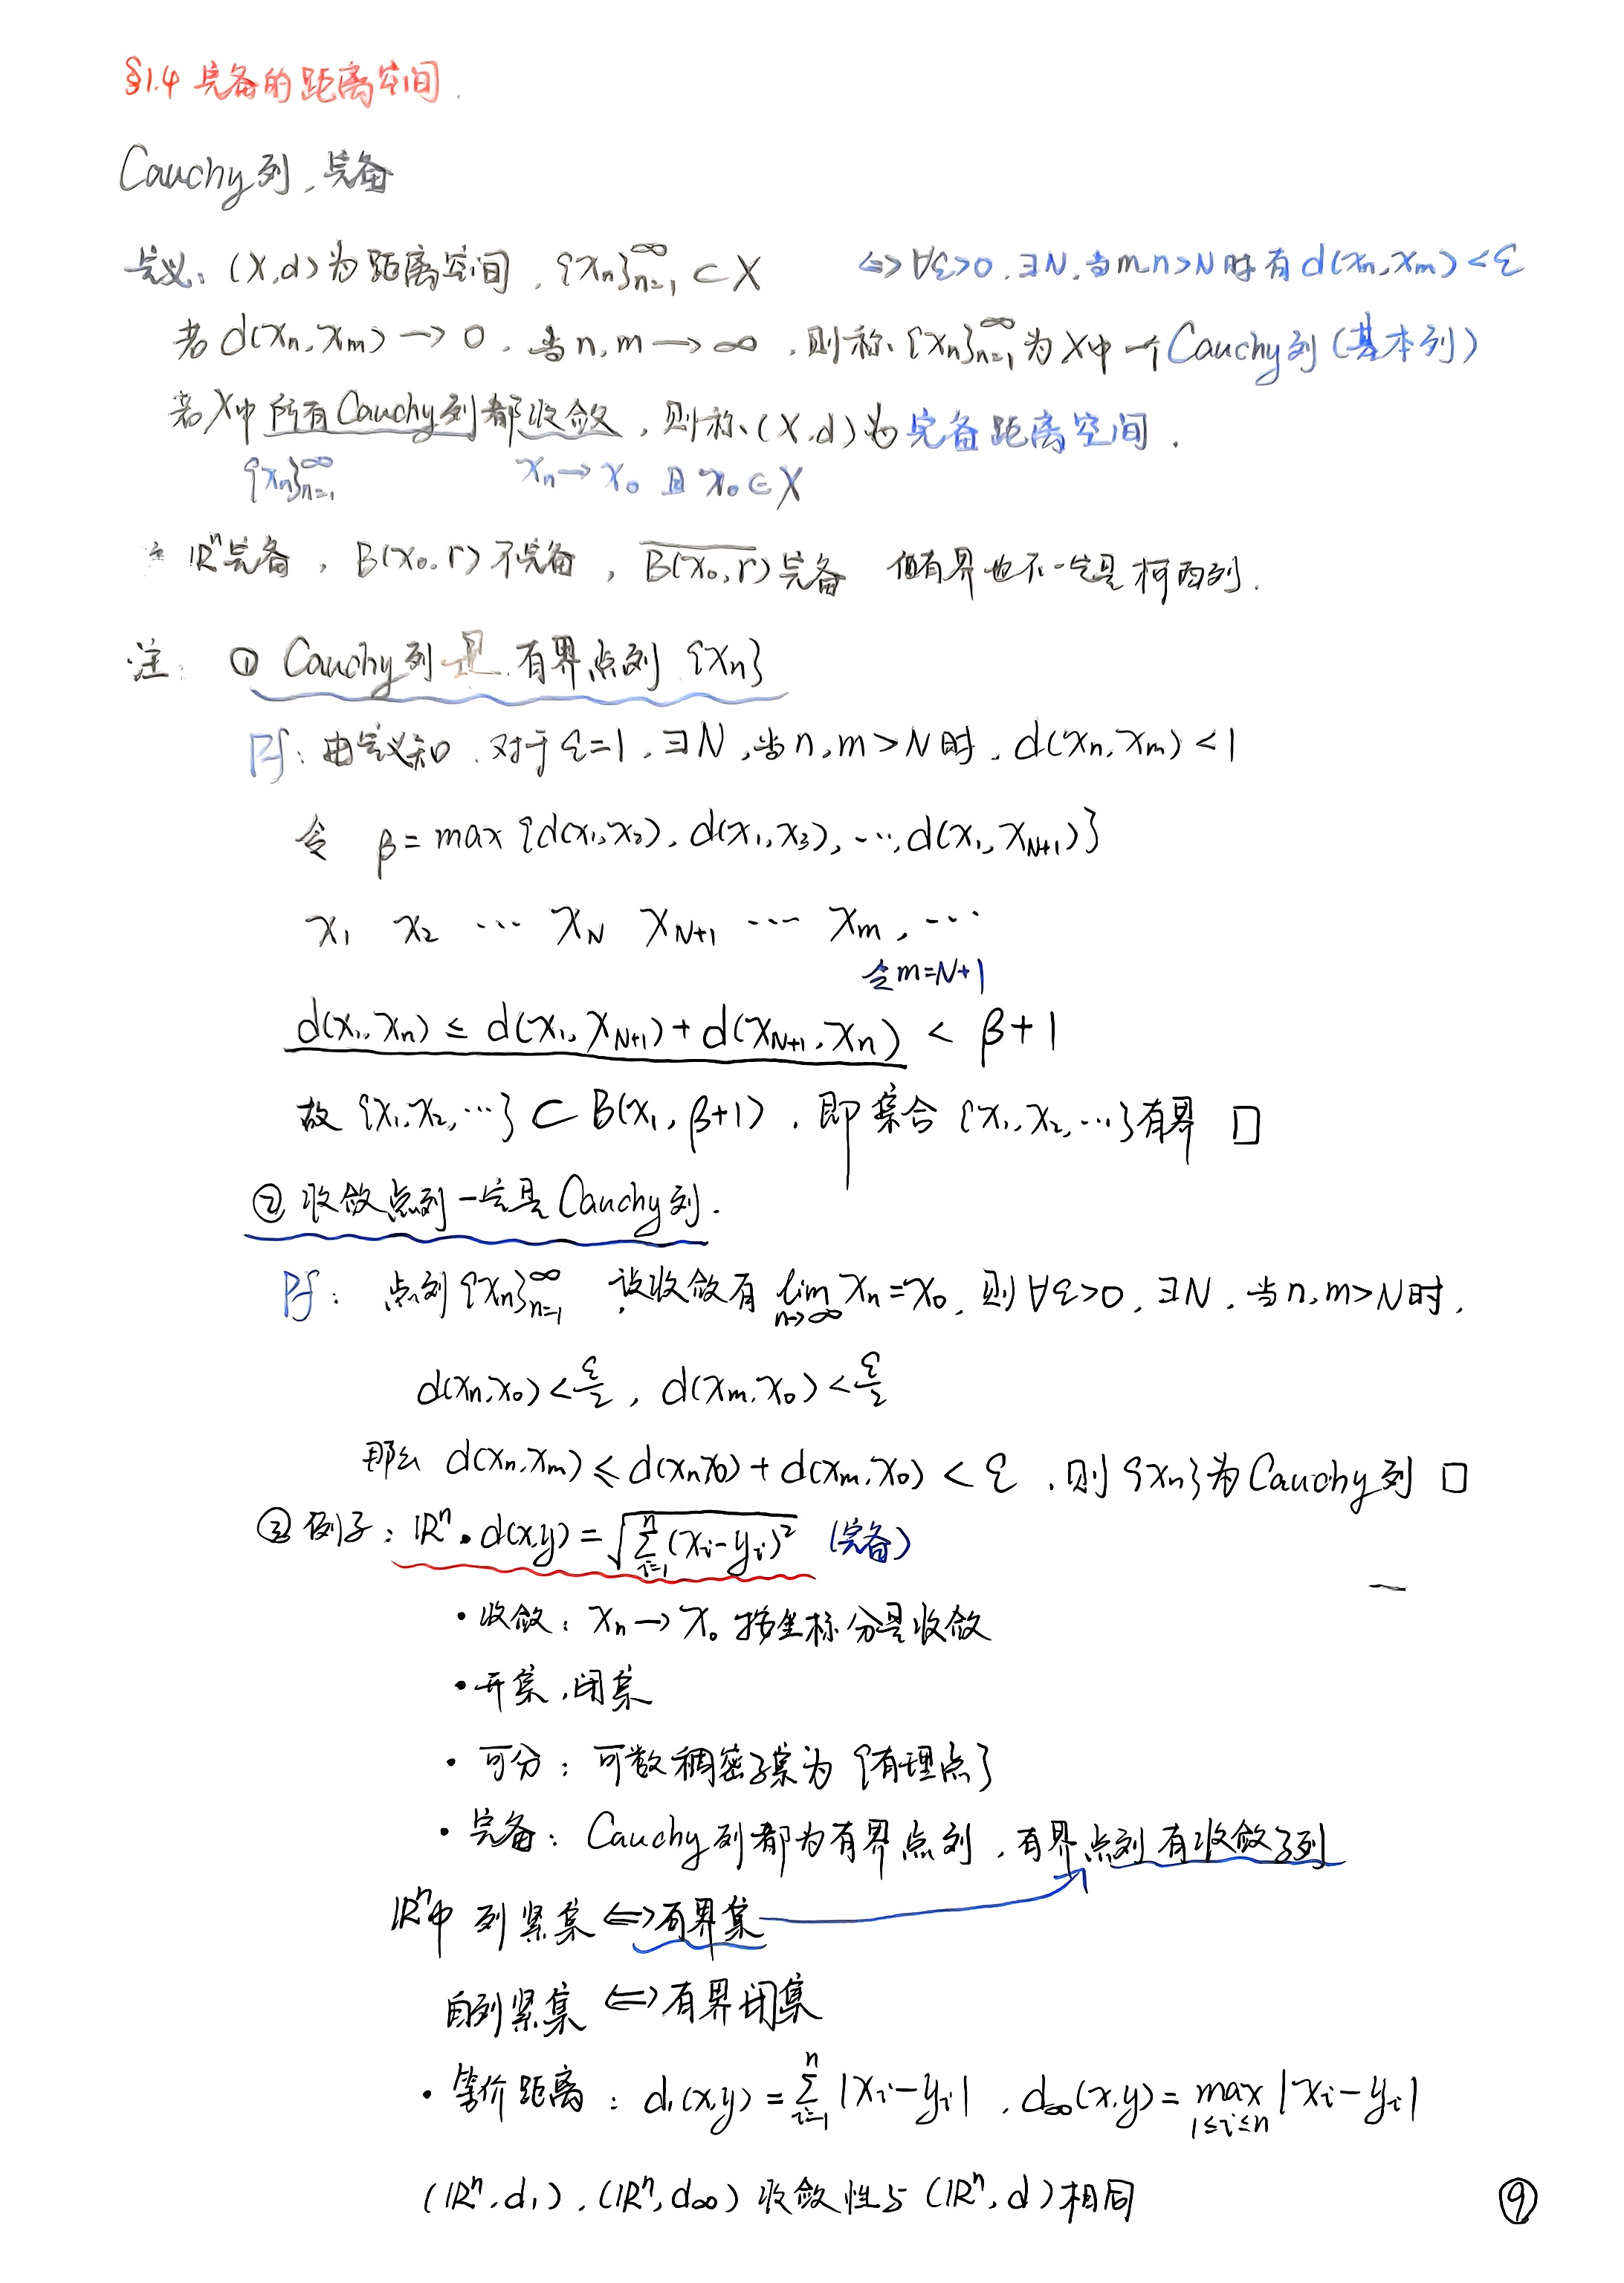 §1.4 完备的距离空间.
Cauchy列,完备
定义: (X,d)为距离空间, {xₙ}ₙ₌₁^∞ ⊂ X ⇔ ∀ε>0, ∃N, 当m,n>N时有 d(xₙ,xₘ)<ε
若 d(xₙ,xₘ) → 0, 当 n,m → ∞, 则称 {xₙ}ₙ₌₁^∞ 为X中一个Cauchy列(基本列)
若X中所有Cauchy列都收敛, 则称(X,d)为完备距离空间.
{xₙ}ₙ₌₁^∞ xₙ→x₀ 且 x₀∈X
ℝⁿ完备, B(x₀,r)不完备, \overline{B(x₀,r)}完备 但有界也不一定是柯西列.
注: ① Cauchy列是有界点列 {xₙ}
Pf: 由定义知, 对于ε=1, ∃N, 当n,m>N时, d(xₙ,xₘ)<1
令 β = max {d(x₁,x₂), d(x₁,x₃), ⋯, d(x₁,x_{N+1})}
x₁ x₂ ⋯ x_N x_{N+1} ⋯ xₘ, ⋯
令m=N+1
d(x₁,xₙ) ≤ d(x₁,x_{N+1}) + d(x_{N+1},xₙ) < β+1
故 {x₁,x₂,⋯} ⊂ B(x₁,β+1), 即集合 {x₁,x₂,⋯}有界 □
② 收敛点列一定是Cauchy列.
Pf: 点列{xₙ}ₙ₌₁^∞ 设收敛有 lim_{n→∞} xₙ=x₀, 则∀ε>0, ∃N, 当n,m>N时,
d(xₙ,x₀)<ε/2, d(xₘ,x₀)<ε/2
那么 d(xₙ,xₘ) ≤ d(xₙ,x₀) + d(xₘ,x₀) < ε, 则{xₙ}为Cauchy列 □
③ 例子: ℝⁿ. d(x,y) = √(∑_{i=1}^n (xᵢ-yᵢ)²) (完备)
• 收敛: xₙ→x₀ 按坐标分量收敛
• 开集, 闭集
• 可分: 可数稠密子集为 {有理点}
• 完备: Cauchy列都为有界点列, 有界点列有收敛子列
ℝⁿ中 列紧集 ⇔ 有界集
自列紧集 ⇔ 有界闭集
• 等价距离: d₁(x,y) = ∑_{i=1}^n |xᵢ-yᵢ|, d_∞(x,y) = max_{1≤i≤n} |xᵢ-yᵢ|
(ℝⁿ,d₁), (ℝⁿ,d_∞) 收敛性与 (ℝⁿ,d)相同
⑨